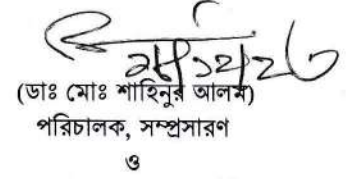 (ডাঃ মোঃ শাহিনুর আলম)
পরিচালক, সম্প্রসারণ
ও